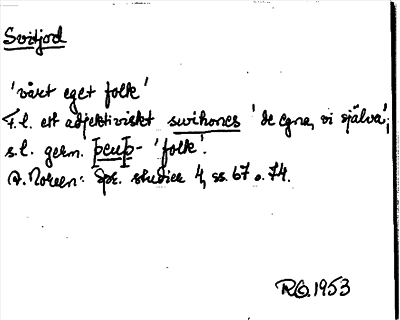 Svitjod
'vårt eget folk'
F.l. ett adjektiviskt swihoncs 'de egna, vi själva';
s.l. germ. þeuþ- 'folk'.
A. Noreen: Spr. studier 4, ss. 67 o. 74.
RG. 1953